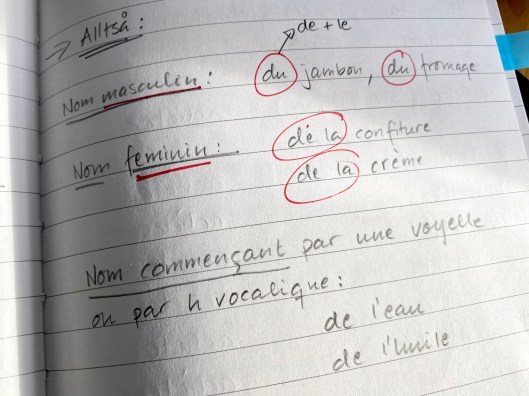 → Alltså:
de + le
Nom masculin: du jambon, du fromage
Nom feminin: de la confiture
de la crème
Nom commençant par une voyelle
ou par h vocalique:
de l'eau
de l'huile